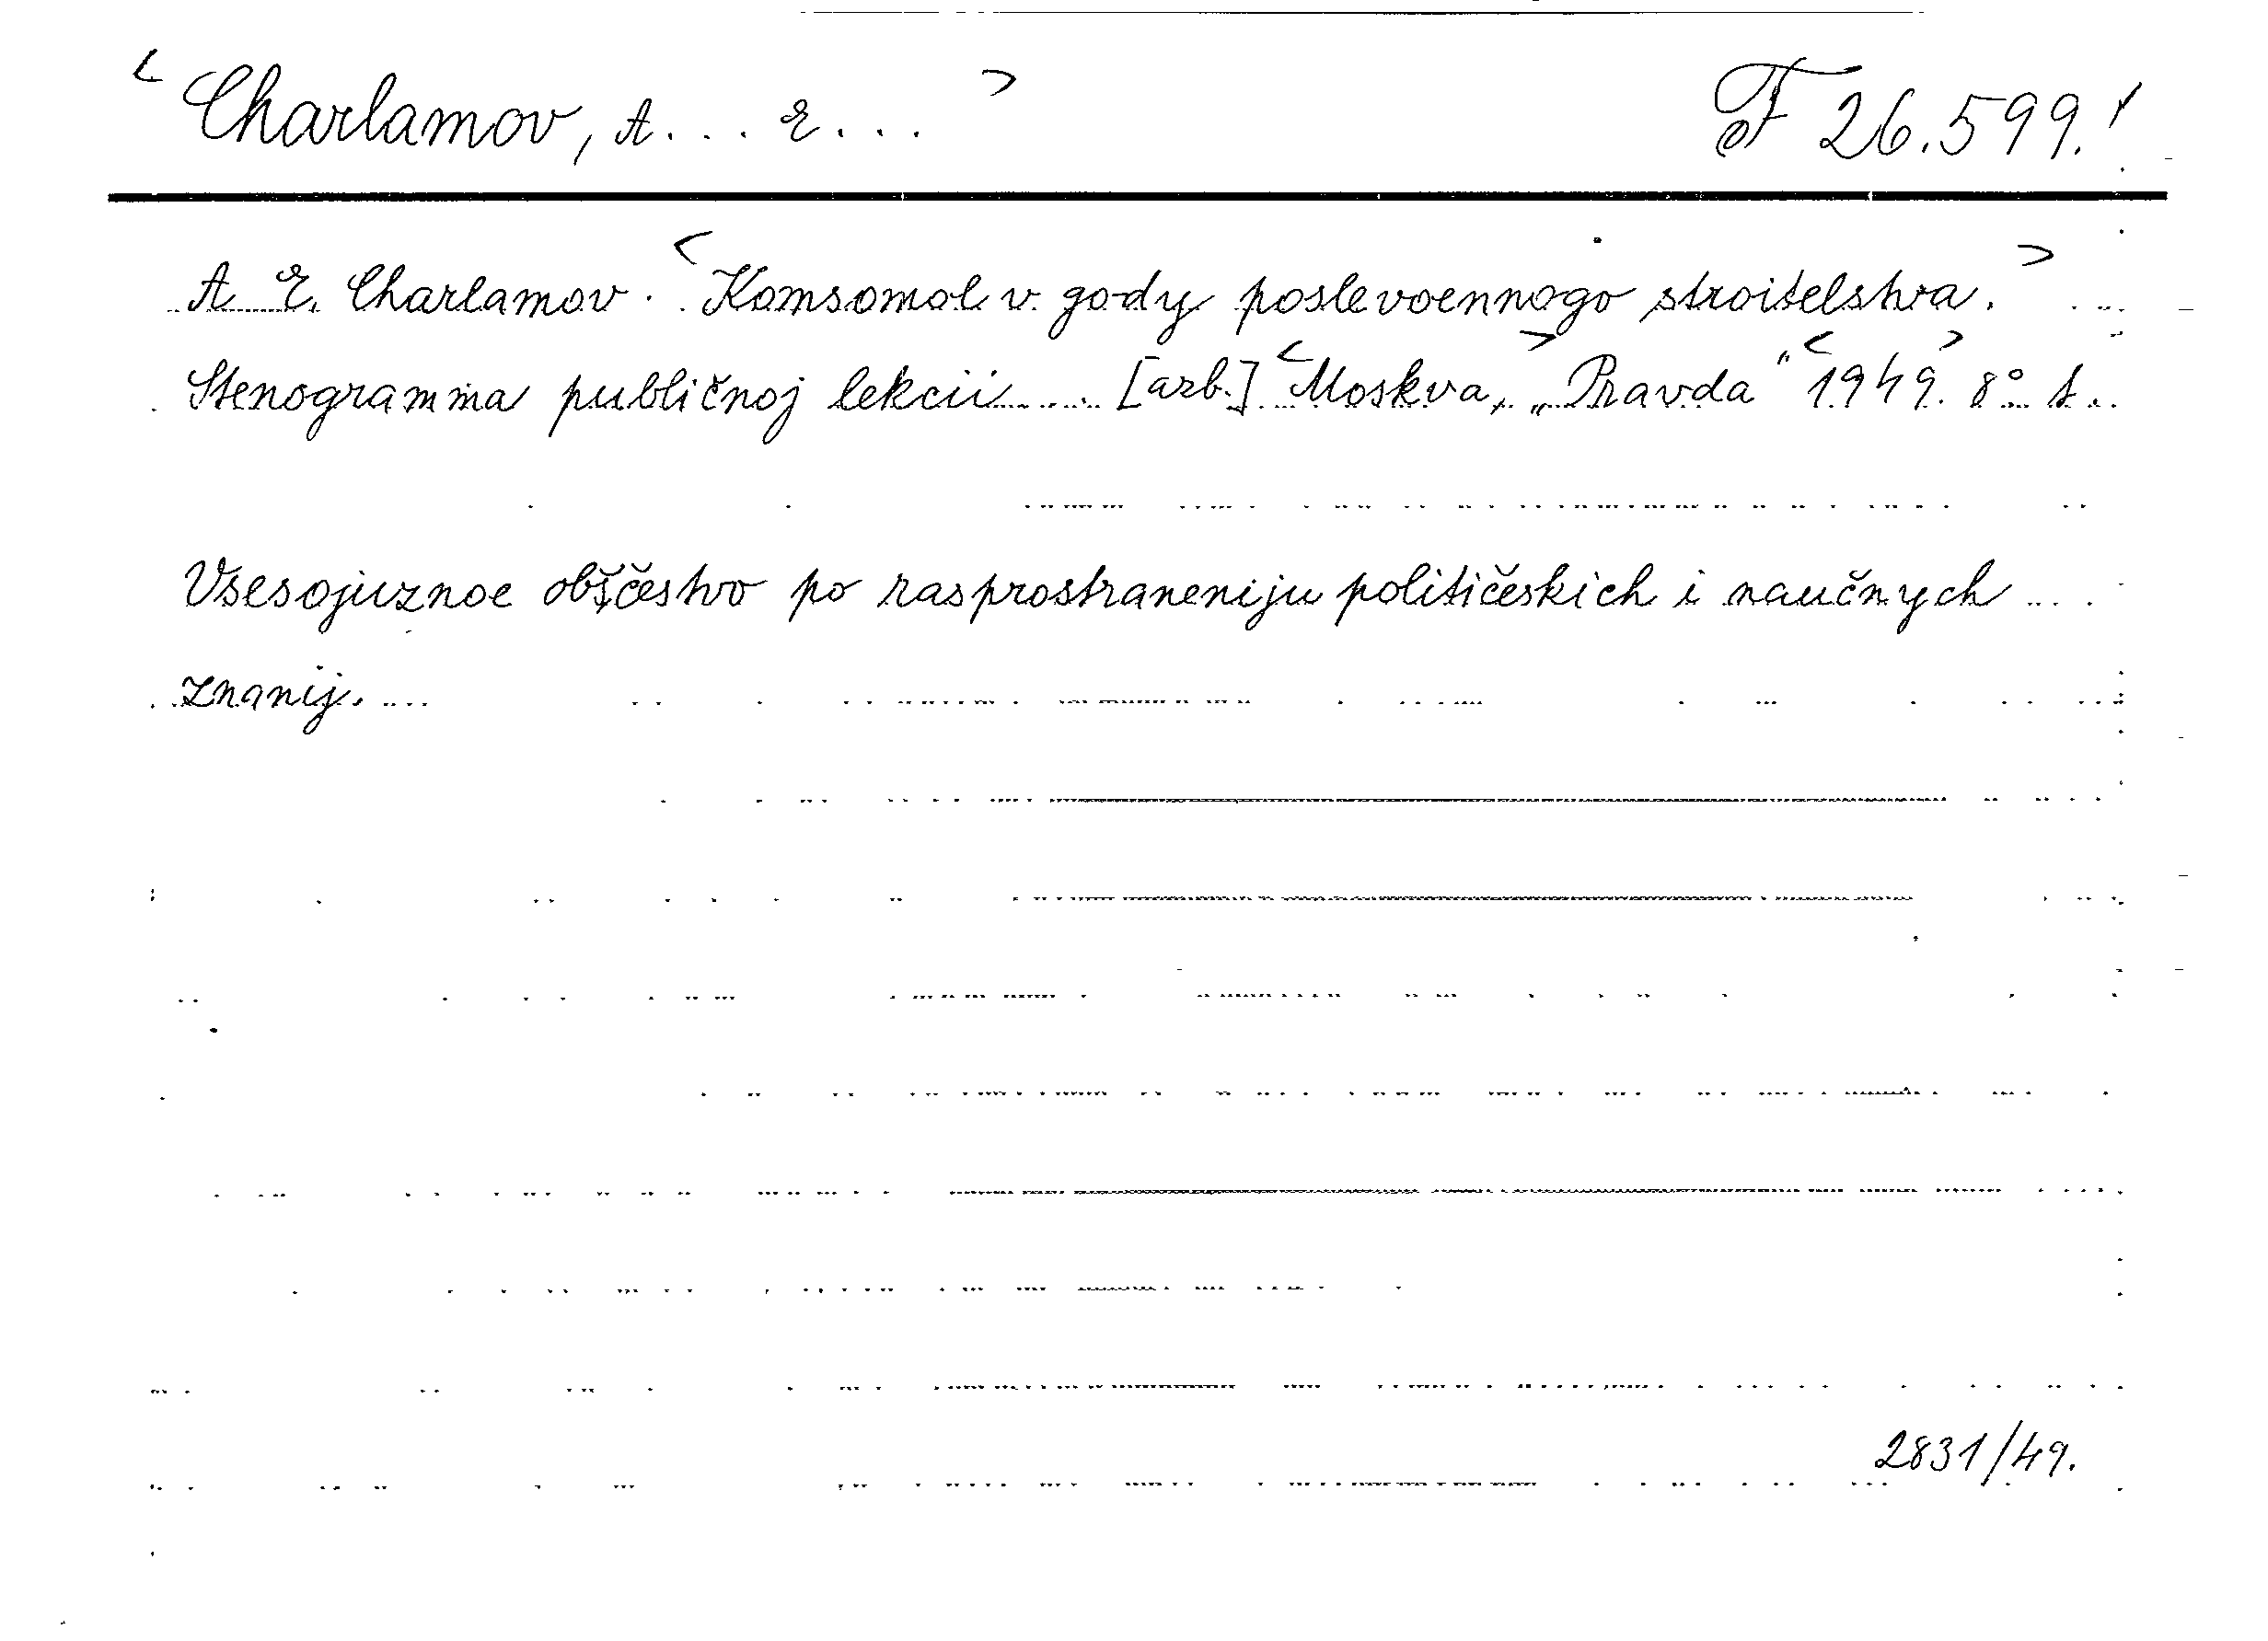 <Charlamov, A... E...> F 26.599.!
A. E. Charlamov. <Komsomol v gody poslevoennogo stroitelstva.>
Stenogramma publičnoj lekcii..... [azb.] <Moskva,> „Pravda" <1949.> 8° 1.
Vsesojuznoe obščestvo po rasprostraneniju političeskich i naučnych
znanij.
2831/49.